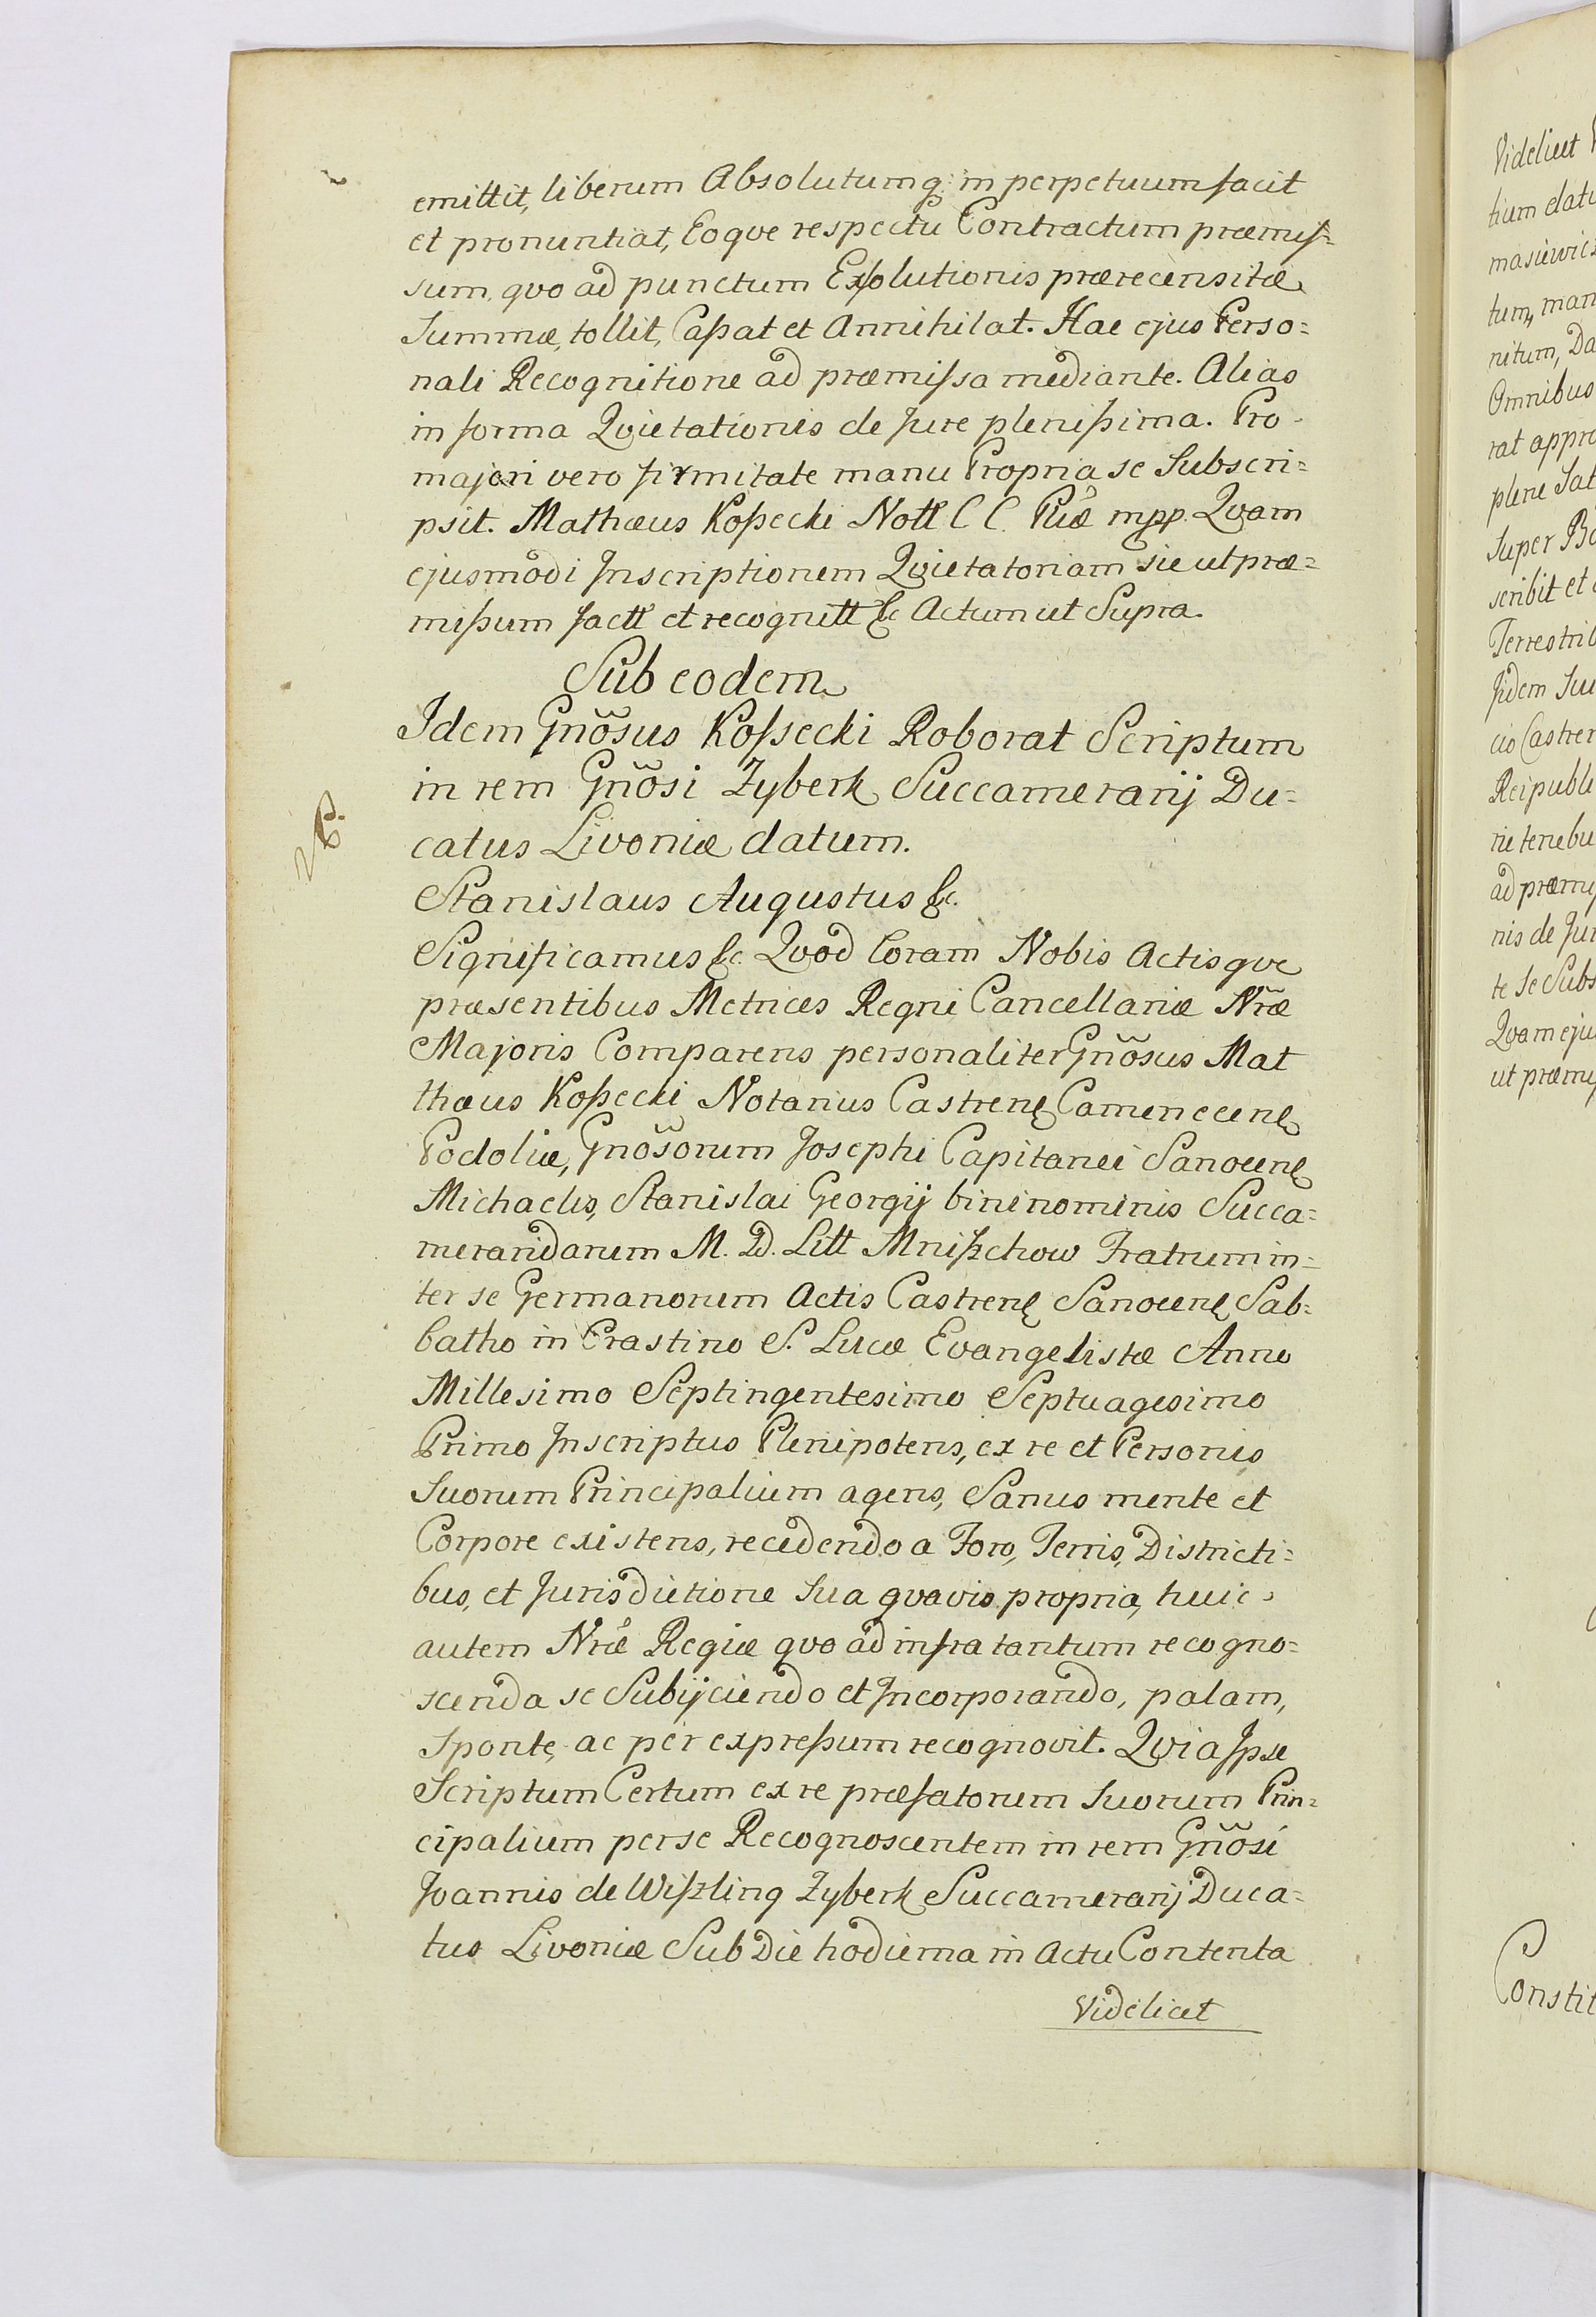 emittit, liberum Absolutumq; in perpetuum facit
et pronuntiat, Eoque respectu Contractum præmiſ=
sum, quo ad punctum Exſolutionis prærecensitæ
Summæ, tollit, Caſsat et Annihilat. Hac ejus Perso=
nali Recognitione ad præmiſsa mediante. Alias
in forma Quietationis de Jure pleniſsima. Pro
majori vero firmitate manu Propria se Subscri=
psit. Mathæus Koſsecki Nott C C. Pliæ mpp. Quam
ejusmodi Inscriptionem Quietatoriam sic ut præ=
miſsum factt et recognitt &c Actum ut Supra.
Sub eodem
Idem Gñõsus Koſsecki Roborat Scriptum
in rem Gñõsi Zyberk Succamerarij Du=
catus Livoniæ datum.
Stanislaus Augustus &c.
Significamus &c. Quod Coram Nobis Actisque
præsentibus Metrices Regni Cancellariæ Nr̃æ
Majoris Comparens personaliter Gñõsus Mat
thæus Koſsecki Notarius Castren̄ Camenecen̄
Podoliæ, Gñõsorum Josephi Capitanei Sanocen̄
Michaelis, Stanislai Georgij bini nominis Succa=
merandarum M. D. Litt Mniſzchow Fratrum in=
ter se Germanorum Actis Castren̄ Sanocen̄ Sab=
batho in Crastino S. Lucæ Evangelistæ Anno
Millesimo Septingentesimo Septuagesimo
Primo Inscriptus Plenipotens, ex re et Personis
Suorum Principalium agens, Sanus mente et
Corpore existens, recedendo a Foro, Terris, Districti=
bus, et Jurisdictione Sua quavis propria, huic
autem Nr̃æ Regiæ quo ad infra tantum recogno=
scenda se Subijciendo et Incorporando, palam,
Sponte, ac per expreſsum recognovit. Quia Ipse
Scriptum Certum ex re præfatorum Suorum Prin=
cipalium per se Recognoscentem in rem Gñõsi
Joannis de Wiſzling Zyberk Succamerarij Duca=
tus Livoniæ Sub Die hodierna in Actu Contenta
Videlicet
Videlicet
tium dat
masiewic
tum, man
nitum, Da
Omnibus
rat appro
plene Sat
Super Bo
scribit et
Terrestrib
fidem Su
cio Castren
Reipubli
rie tenebu
ad præmiſ
nis de Jur
te se Subs
Quam eju
ut præmiſ
Constit